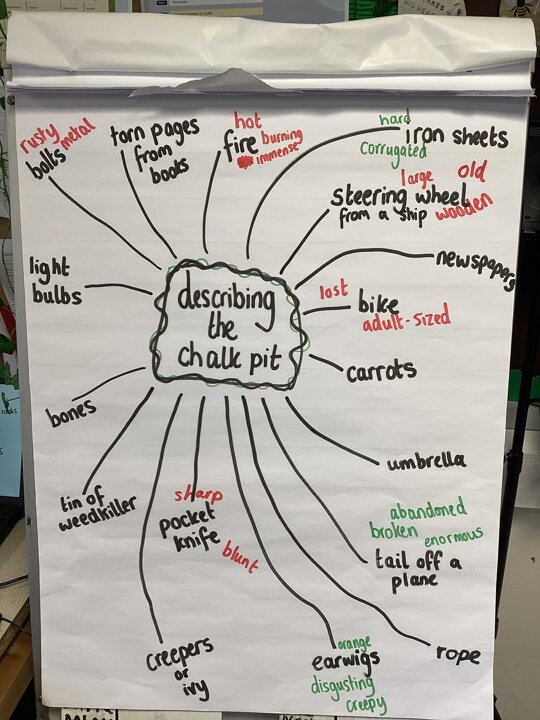 describing
the
chalk pit
rusty
metal
bolts
torn pages
from
books
hot
fire burning
immense
hard
iron sheets
corrugated
large old
steering wheel
from a ship wooden
newspapers
lost
bike
adult-sized
carrots
umbrella
abandoned
broken enormous
tail off a
plane
rope
orange
earwigs
disgusting
creepy
sharp
pocket
knife
blunt
creepers
or
ivy
tin of
weedkiller
bones
light
bulbs
BIG HEA
rocks